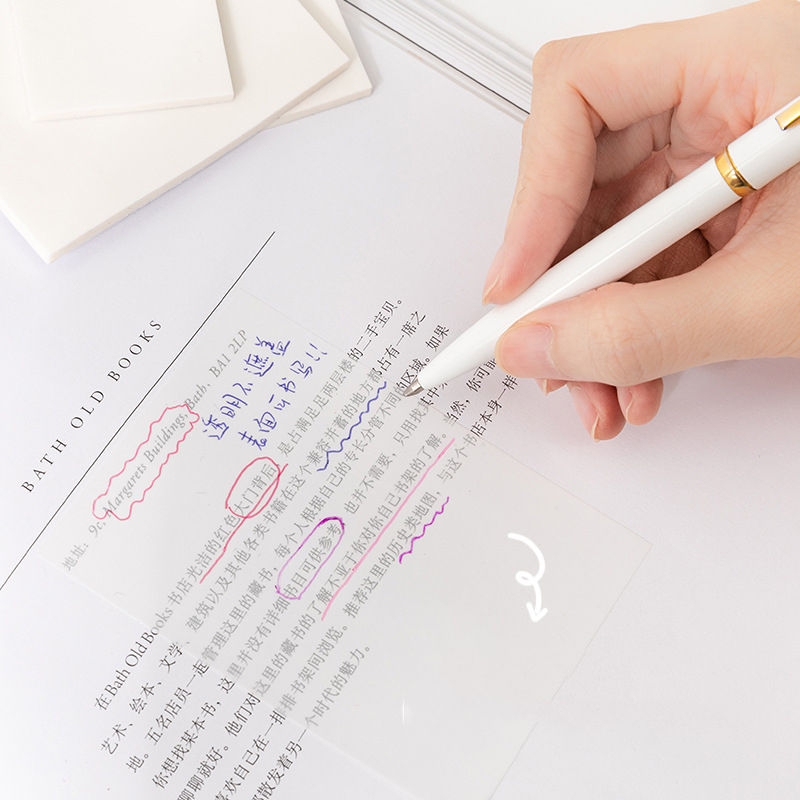 BATH OLD BOOKS
地址：9c, Margarets Buildings, Bath, BA1 2LP
透明不遮盖
表面可书写!!
在Bath Old Books 书店光洁的红色大门背后，是占满足足两层楼的二手宝贝。
艺术、绘本、文学、建筑以及其他各类书籍在这个兼容并蓄的地方都占有一席之
地。五名店员一起管理这里的藏书，每个人根据自己的专长分管不同的区域。如果
你想找某本书，这里并没有详细书目可供参考，也并不需要，只用找其中
聊聊就好。他们对这里的藏书的了解不亚于你对自己书架的了解。当然，你可能
喜欢自己在一排排书架间浏览。推荐这里的历史类地图，与这个书店本身一样
都散发着另一个时代的魅力。